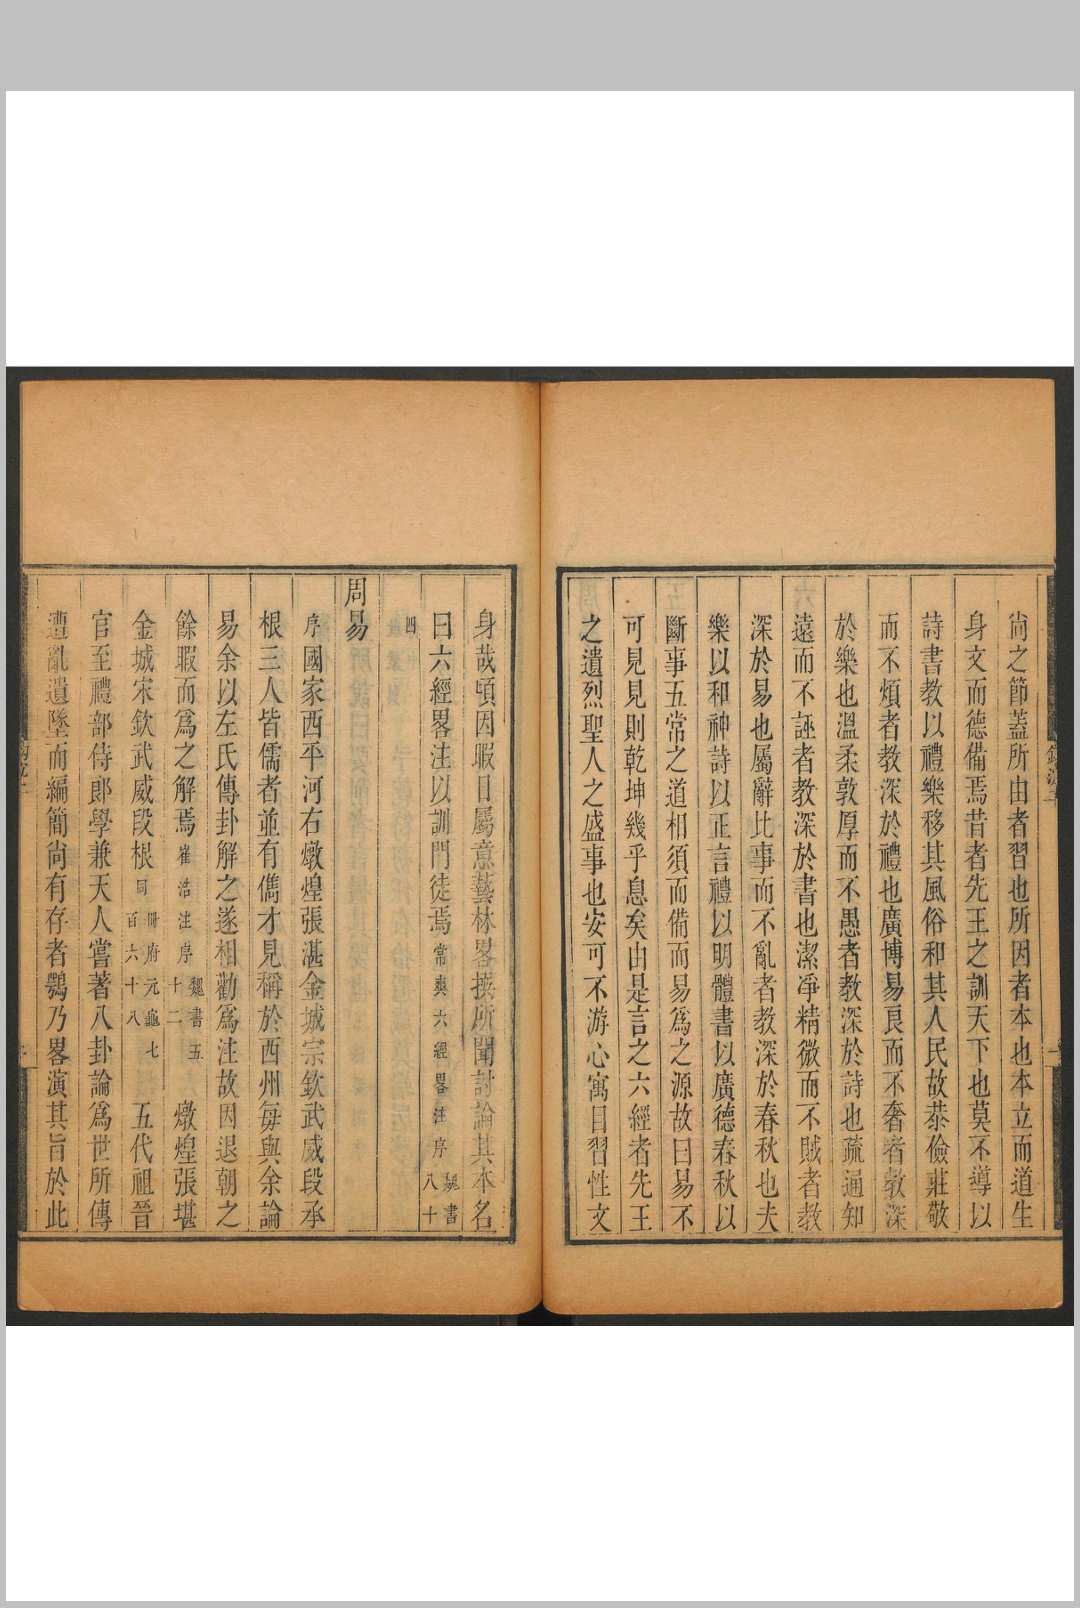 尚之節蓋所由者習也所因者本也本立而道生
身文而德備焉昔者先王之訓天下也莫不導以
詩書教以禮樂移其風俗和其人民故恭儉莊敬
而不煩者教深於禮也廣博易良而不奢者教深
於樂也溫柔敦厚而不愚者教深於詩也疏通知
遠而不誣者教深於書也潔淨精微而不賊者教
深於易也屬辭比事而不亂者教深於春秋也夫
樂以和神詩以正言禮以明體書以廣德春秋以
斷事五常之道相須而備而易爲之源故曰易不
可見見則乾坤幾乎息矣由是言之六經者先王
之遺烈聖人之盛事也安可不游心寓目習性文
身哉頃因暇日屬意藝林畧撰所聞討論其本名
曰六經畧注以訓門徒焉常爽六經畧注序魏書八十
四
周易
序國家西平河右燉煌張湛金城宗欽武威段承
根三人皆儒者並有儁才見稱於西州每與余論
易余以左氏傳卦解之遂相勸爲注故因退朝之
餘暇而爲之解焉崔浩注序魏書五十二 燉煌張堪
金城宋欽武威段根同冊府元龜七百六十八 五代祖晉
官至禮部侍郎學兼天人嘗著八卦論爲世所傳
遭亂遺墜而編簡尚有存者鶚乃畧演其旨於此